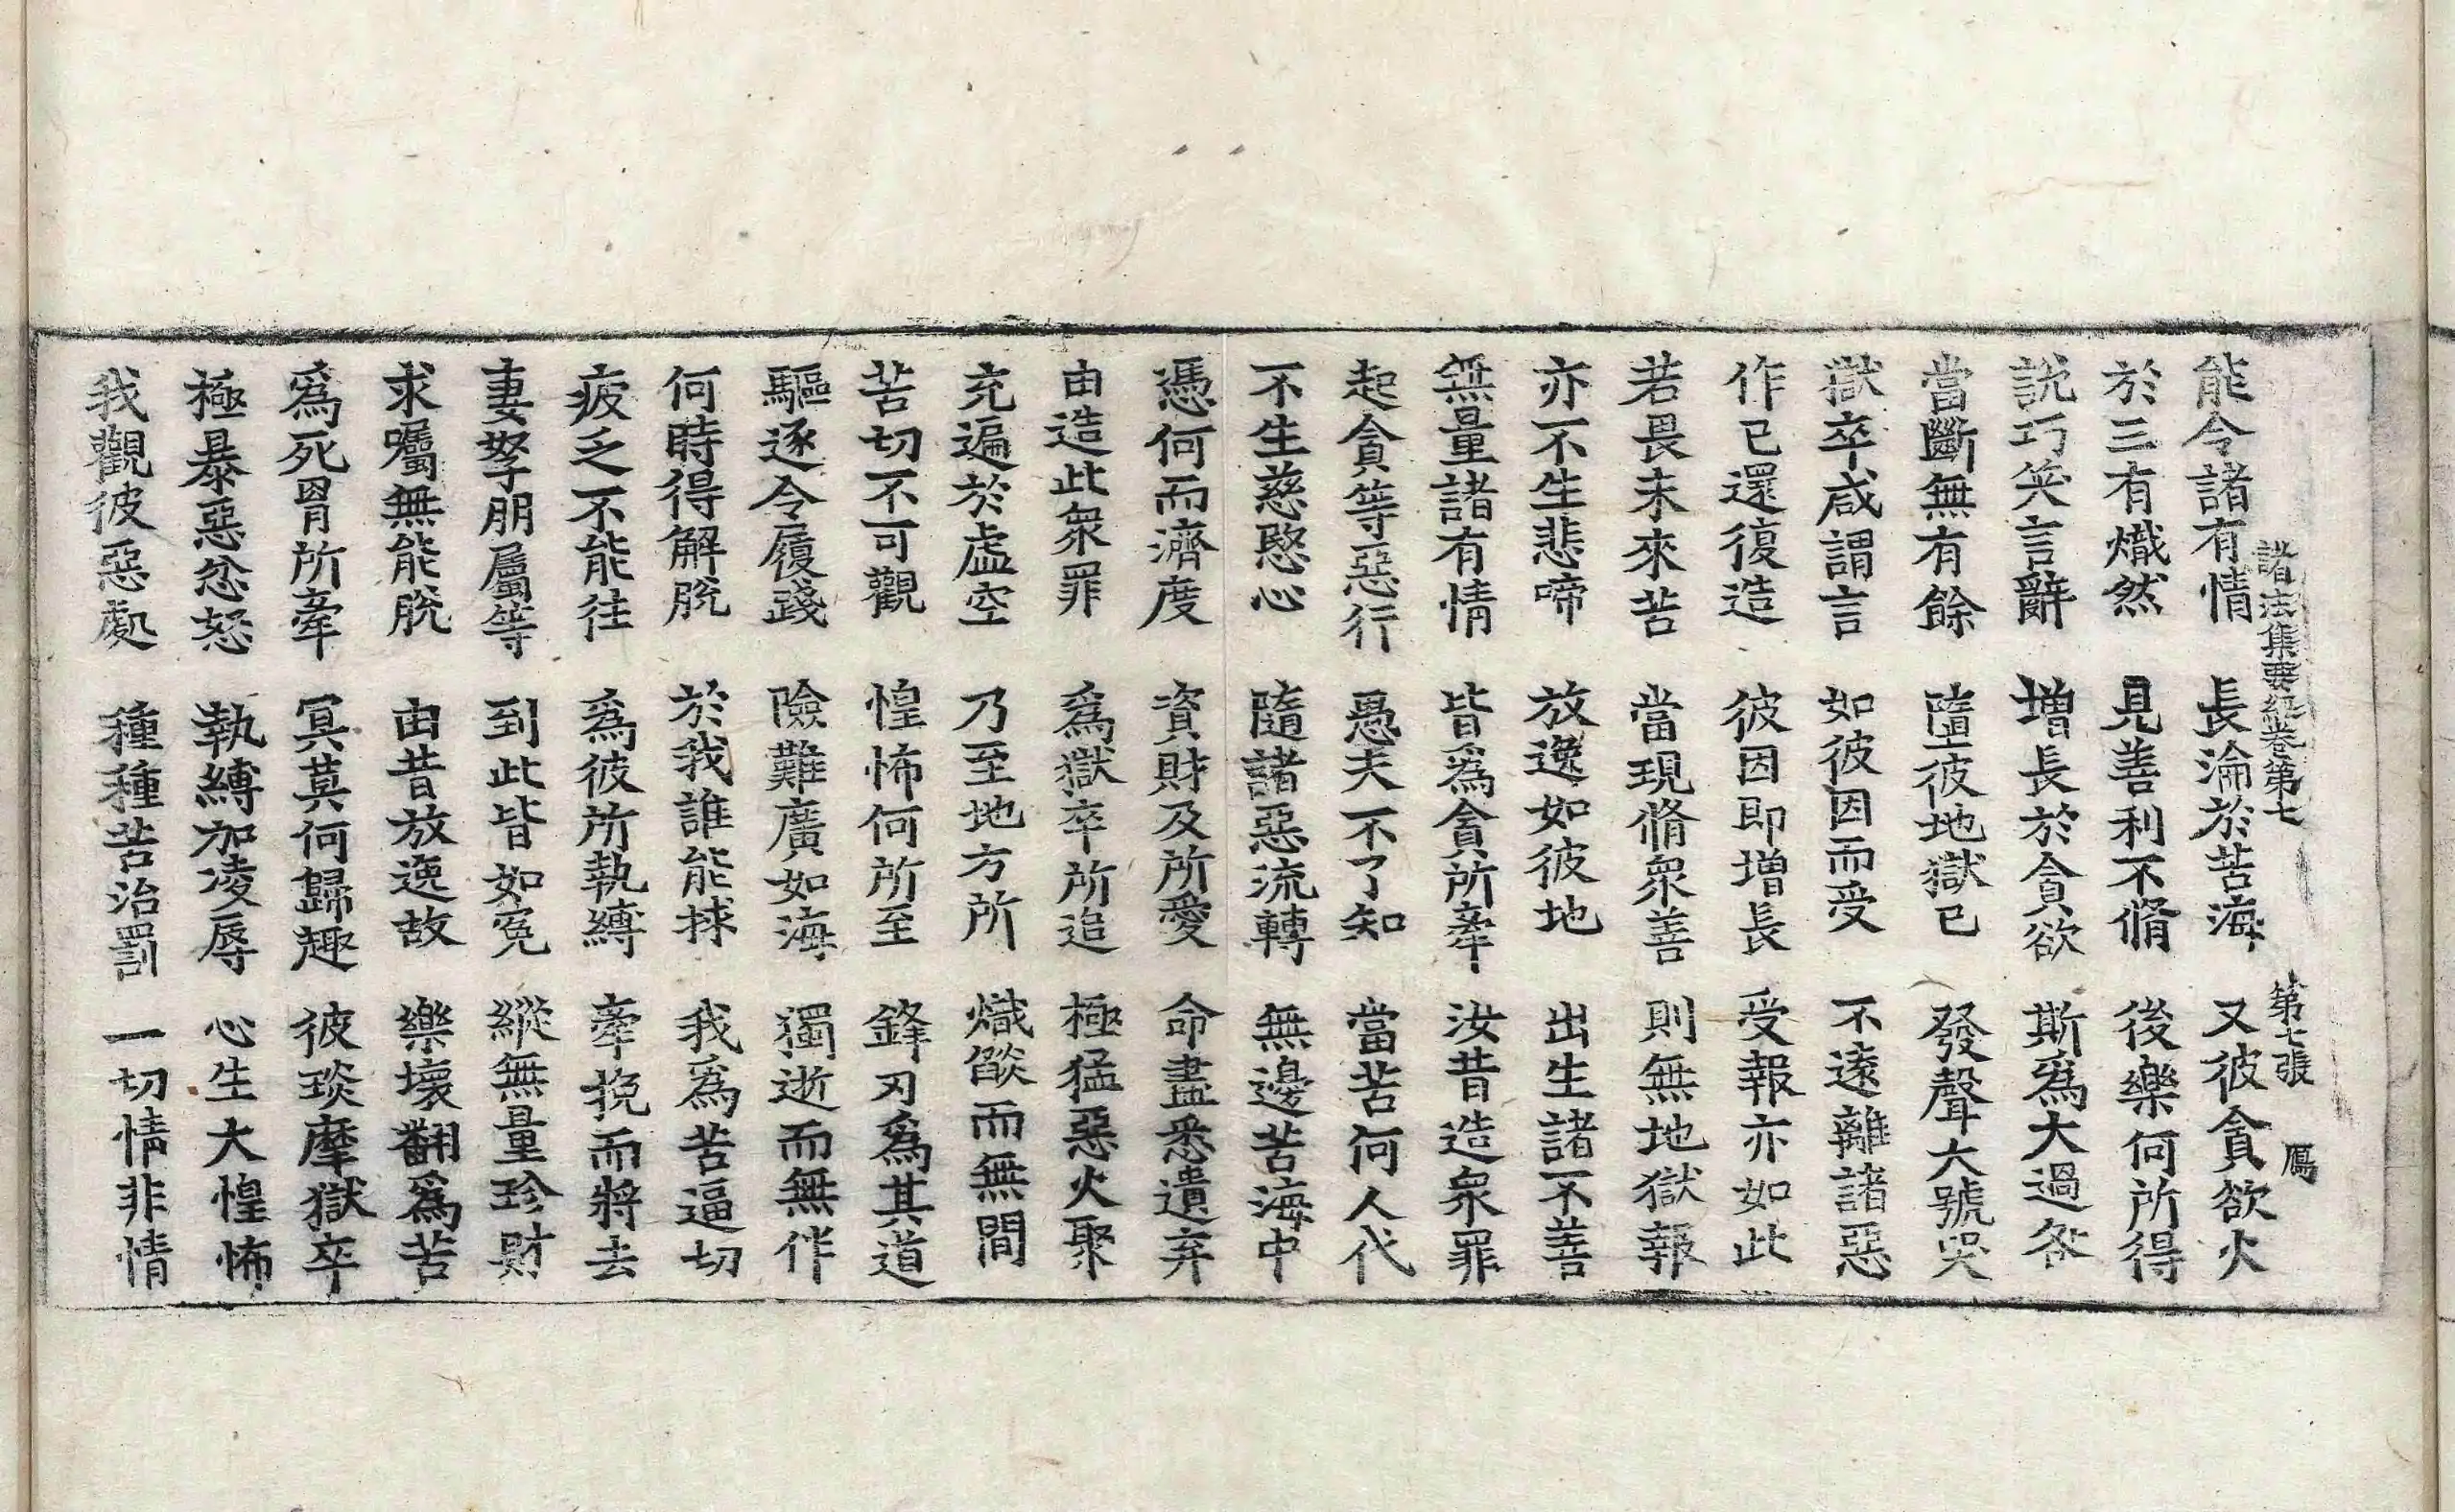 諸法集要經卷第七 第七張 鴈
能令諸有情 長淪於苦海 又彼貪欲火
於三有熾然 見善利不脩 後樂何所得
說巧笑言辭 增長於貪欲 斯爲大過咎
當斷無有餘 墮彼地獄已 發聲大號哭
獄卒咸謂言 如彼因而受 不遠離諸惡
作已還復造 彼因即增長 受報亦如此
若畏未來苦 當現脩衆善 則無地獄報
亦不生悲啼 放逸如彼地 出生諸不善
無量諸有情 皆爲貪所牽 汝昔造衆罪
起貪等惡行 愚夫不了知 當苦何人代
不生慈愍心 隨諸惡流轉 無邊苦海中
憑何而濟度 資財及所愛 命盡悉遺弃
由造此衆罪 爲獄卒所追 極猛惡火聚
充遍於虛空 乃至地方所 熾燄而無間
苦切不可觀 惶怖何所至 鋒刃爲其道
驅逐令履踐 險難廣如海 獨逝而無伴
何時得解脫 於我誰能捄 我爲苦逼切
疲乏不能往 爲彼所執縛 牽挽而將去
妻孥朋屬等 到此皆如冤 縱無量珍財
求囑無能脫 由昔放逸故 樂壞翻爲苦
爲死罥所牽 冥莫何歸趣 彼琰摩獄卒
極暴惡忿怒 執縛加凌辱 心生大惶怖
我觀彼惡處 種種苦治罰 一切情非情